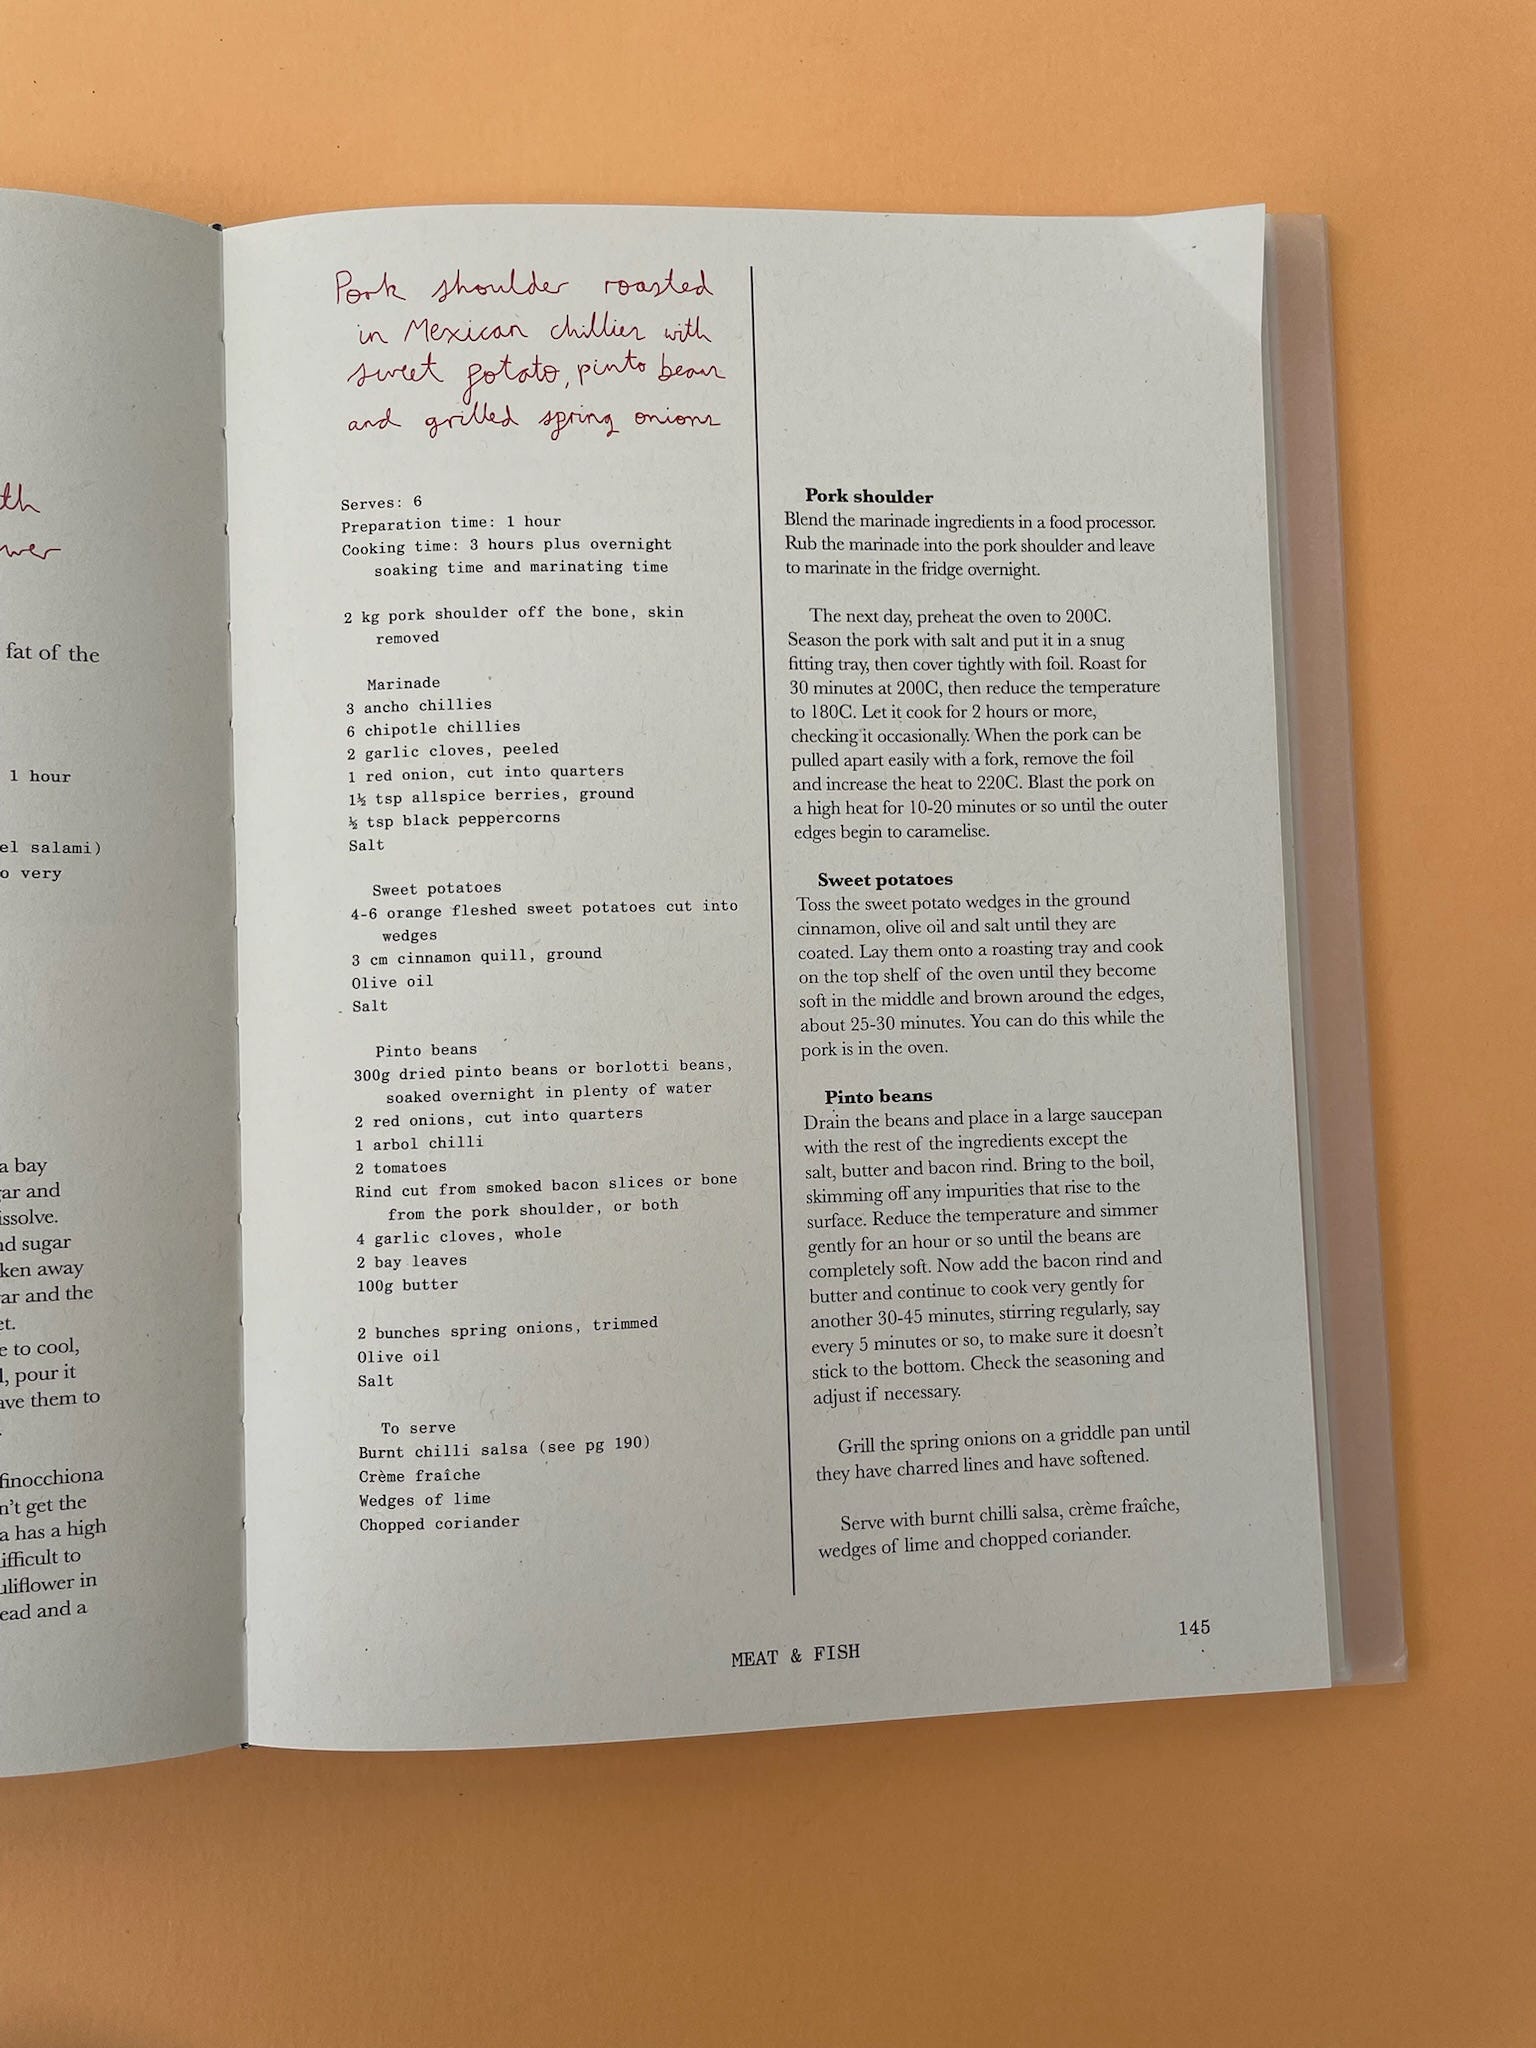 th
wer
fat of the
1 hour
el salami)
o very
a bay
ar and
issolve.
nd sugar
ken away
ar and the
et.
e to cool,
l, pour it
ave them to
finocchiona
n't get the
a has a high
ifficult to
uliflower in
ead and a
Pork shoulder roasted
in Mexican chillies with
sweet potato, pinto beans
and grilled spring onions
Serves: 6
Preparation time: 1 hour
Cooking time: 3 hours plus overnight
soaking time and marinating time
2 kg pork shoulder off the bone, skin
removed
Marinade
3 ancho chillies
6 chipotle chillies
2 garlic cloves, peeled
1 red onion, cut into quarters
1½ tsp allspice berries, ground
½ tsp black peppercorns
Salt
Sweet potatoes
4-6 orange fleshed sweet potatoes cut into
wedges
3 cm cinnamon quill, ground
Olive oil
Salt
Pinto beans
300g dried pinto beans or borlotti beans,
soaked overnight in plenty of water
2 red onions, cut into quarters
1 arbol chilli
2 tomatoes
Rind cut from smoked bacon slices or bone
from the pork shoulder, or both
4 garlic cloves, whole
2 bay leaves
100g butter
2 bunches spring onions, trimmed
Olive oil
Salt
To serve
Burnt chilli salsa (see pg 190)
Crème fraîche
Wedges of lime
Chopped coriander
Pork shoulder
Blend the marinade ingredients in a food processor.
Rub the marinade into the pork shoulder and leave
to marinate in the fridge overnight.
The next day, preheat the oven to 200C.
Season the pork with salt and put it in a snug
fitting tray, then cover tightly with foil. Roast for
30 minutes at 200C, then reduce the temperature
to 180C. Let it cook for 2 hours or more,
checking it occasionally. When the pork can be
pulled apart easily with a fork, remove the foil
and increase the heat to 220C. Blast the pork on
a high heat for 10-20 minutes or so until the outer
edges begin to caramelise.
Sweet potatoes
Toss the sweet potato wedges in the ground
cinnamon, olive oil and salt until they are
coated. Lay them onto a roasting tray and cook
on the top shelf of the oven until they become
soft in the middle and brown around the edges,
about 25-30 minutes. You can do this while the
pork is in the oven.
Pinto beans
Drain the beans and place in a large saucepan
with the rest of the ingredients except the
salt, butter and bacon rind. Bring to the boil,
skimming off any impurities that rise to the
surface. Reduce the temperature and simmer
gently for an hour or so until the beans are
completely soft. Now add the bacon rind and
butter and continue to cook very gently for
another 30-45 minutes, stirring regularly, say
every 5 minutes or so, to make sure it doesn't
stick to the bottom. Check the seasoning and
adjust if necessary.
Grill the spring onions on a griddle pan until
they have charred lines and have softened.
Serve with burnt chilli salsa, crème fraîche,
wedges of lime and chopped coriander.
MEAT & FISH
145